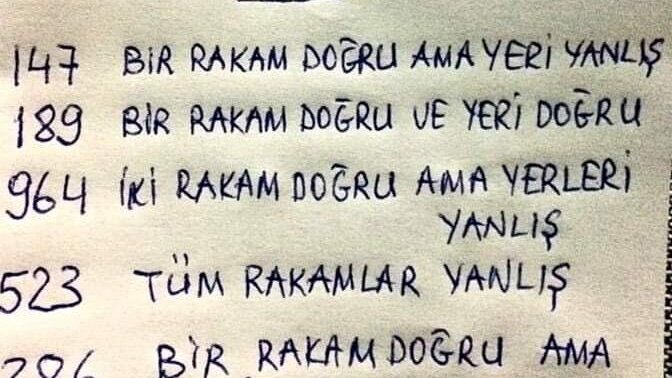 147 BİR RAKAM DOĞRU AMA YERİ YANLIŞ
189 BİR RAKAM DOĞRU VE YERİ DOĞRU
964 İKİ RAKAM DOĞRU AMA YERLERİ
YANLIŞ
523 TÜM RAKAMLAR YANLIŞ
286 BİR RAKAM DOĞRU AMA